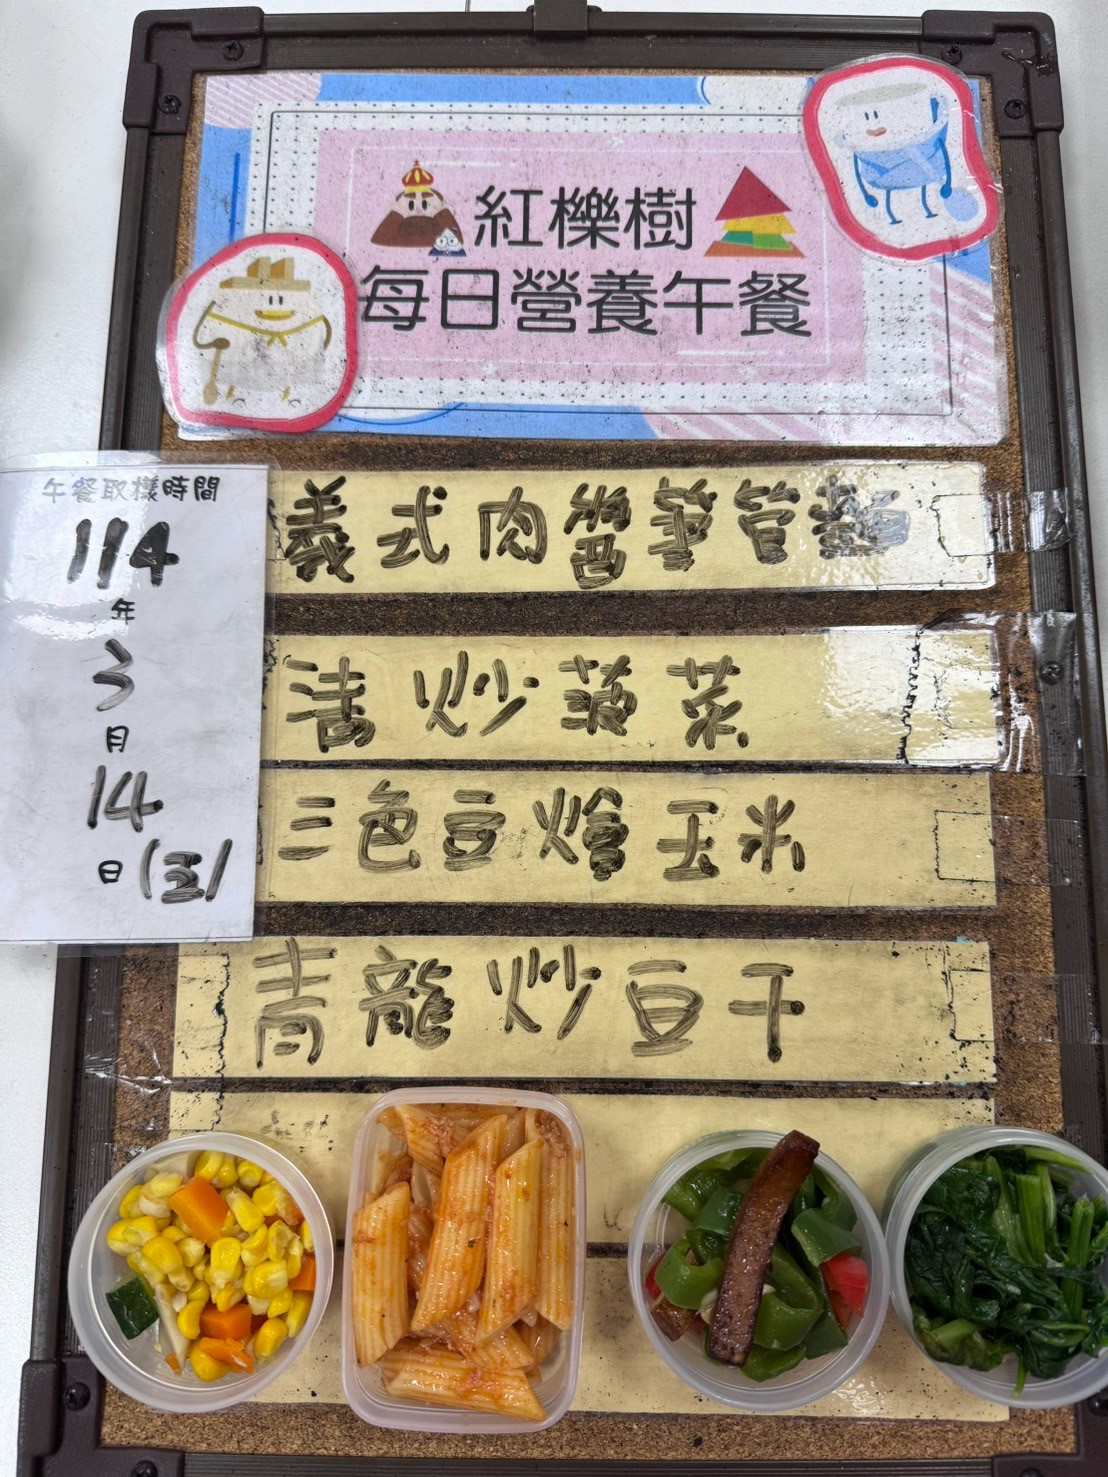 紅櫟樹
每日營養午餐
午餐取樣時間
114
年
3
月
14
日(五)
義式肉醬筆管麵
清炒菠菜
三色豆燴玉米
青龍炒豆干